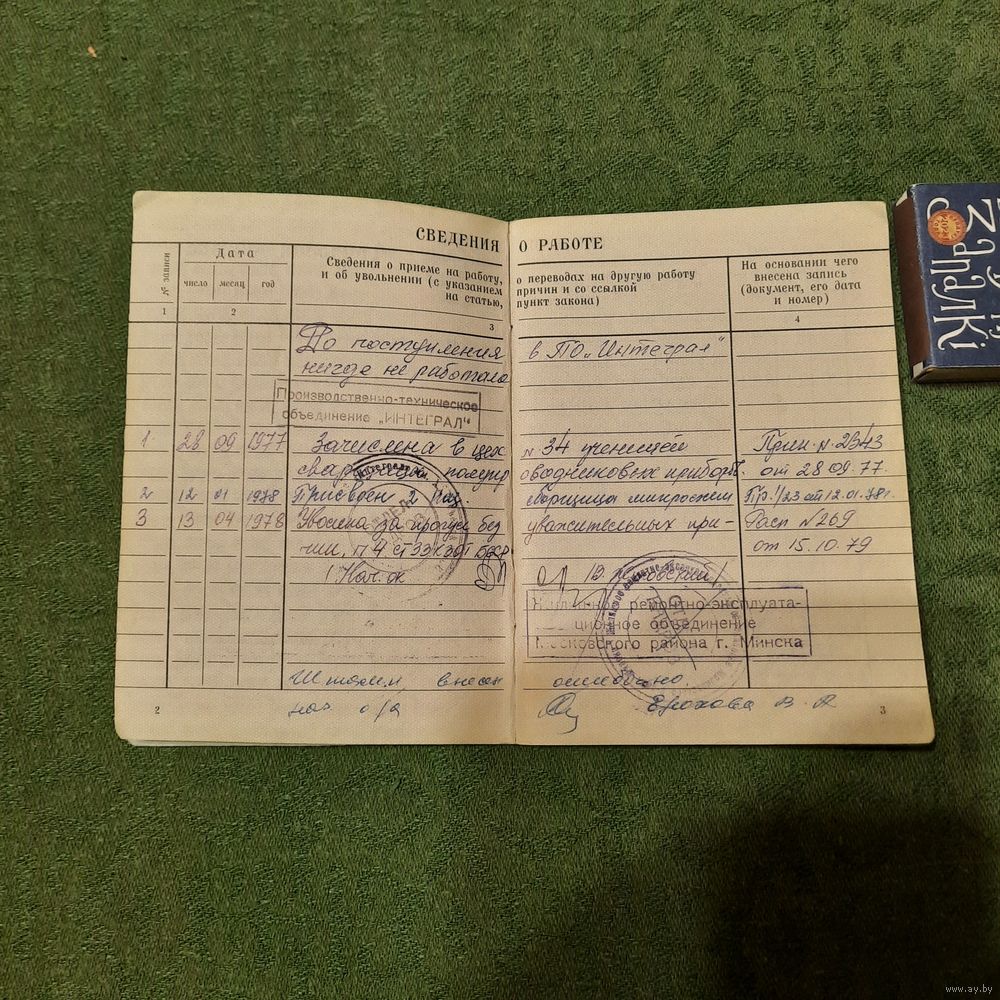 СВЕДЕНИЯ О РАБОТЕ
№ записи
Дата
число месяц год
Сведения о приеме на работу, о переводах на другую работу
и об увольнении (с указанием причин и со ссылкой
на статью, пункт закона)
На основании чего
внесена запись
(документ, его дата
и номер)
1 2 3 4
До поступления в ПО „Интеграл"
нигде не работала
Производственно-техническое
объединение „ИНТЕГРАЛ"
1 28 09 1977 Зачислена в цех № 34 ученицей Прик. н. 2343
сварщицы полупроводниковых приборов от 28 09 77.
2 12 01 1978 Присвоен 2 раз. сварщица микросхем Пр. 1/23 от 12.01.78г.
3 13 04 1978 Уволена за прогул без уважительных при- Расп №269
чин, п 4 ст 33 от 15.10.79
Нач. ок
ремонтно-эксплуата-
ционное объединение
Московского района г. Минска
Штамп внесен ошибочно.
нач о/к Ерохова В. А
2 3
запалкі
www.ay.by